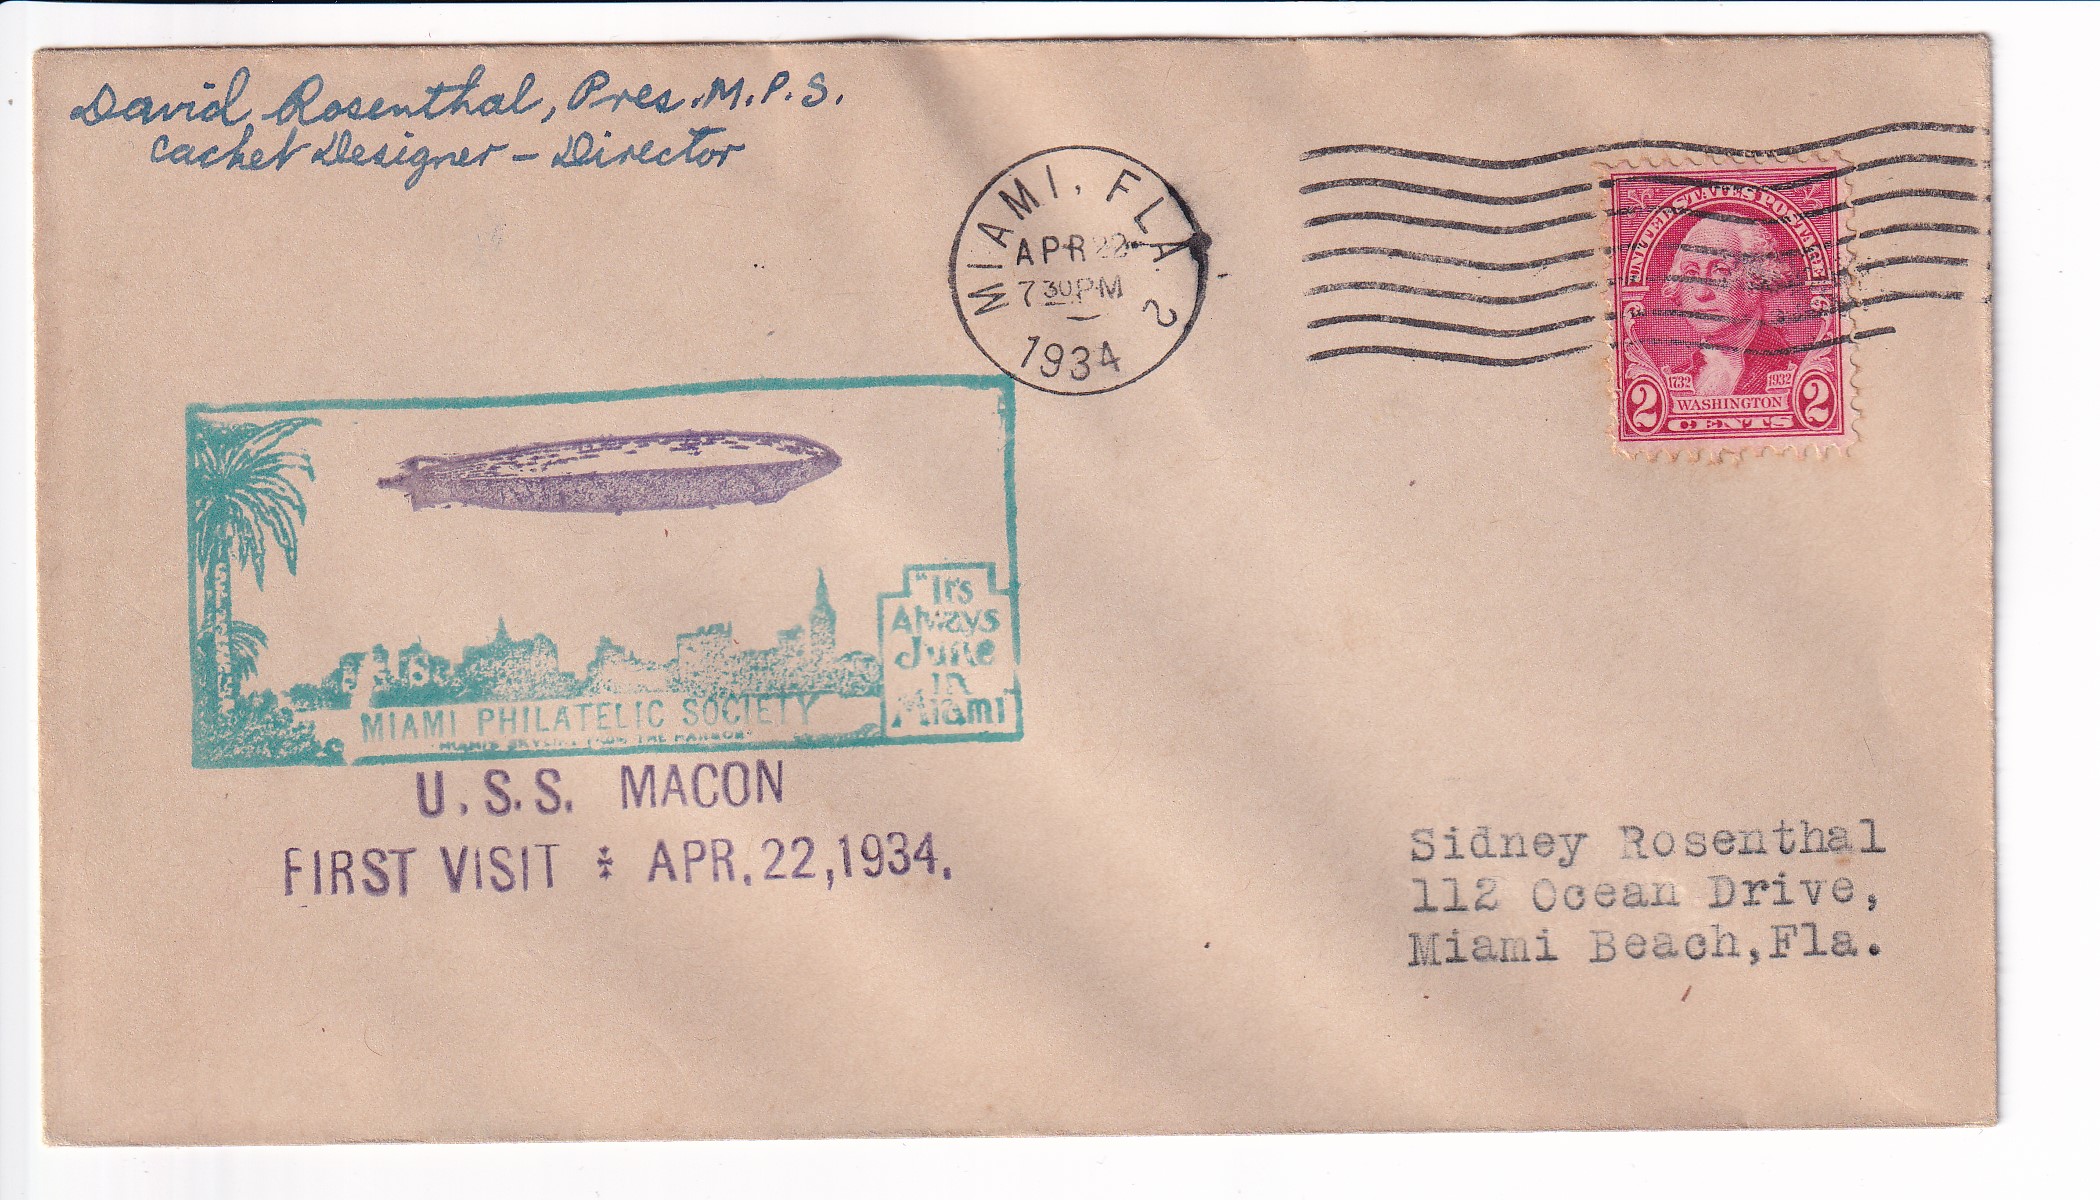 David Rosenthal, Pres. M.P.S.
Cachet Designer - Director
MIAMI, FLA. 2
APR 22
7 30 PM
1934
UNITED STATES POSTAGE
1732 1932
WASHINGTON
2 CENTS 2
"It's
Always
June
In
Miami"
MIAMI PHILATELIC SOCIETY
"MIAMI'S SKYLINE FROM THE HARBOR"
U.S.S. MACON
FIRST VISIT : APR. 22, 1934.
Sidney Rosenthal
112 Ocean Drive,
Miami Beach, Fla.